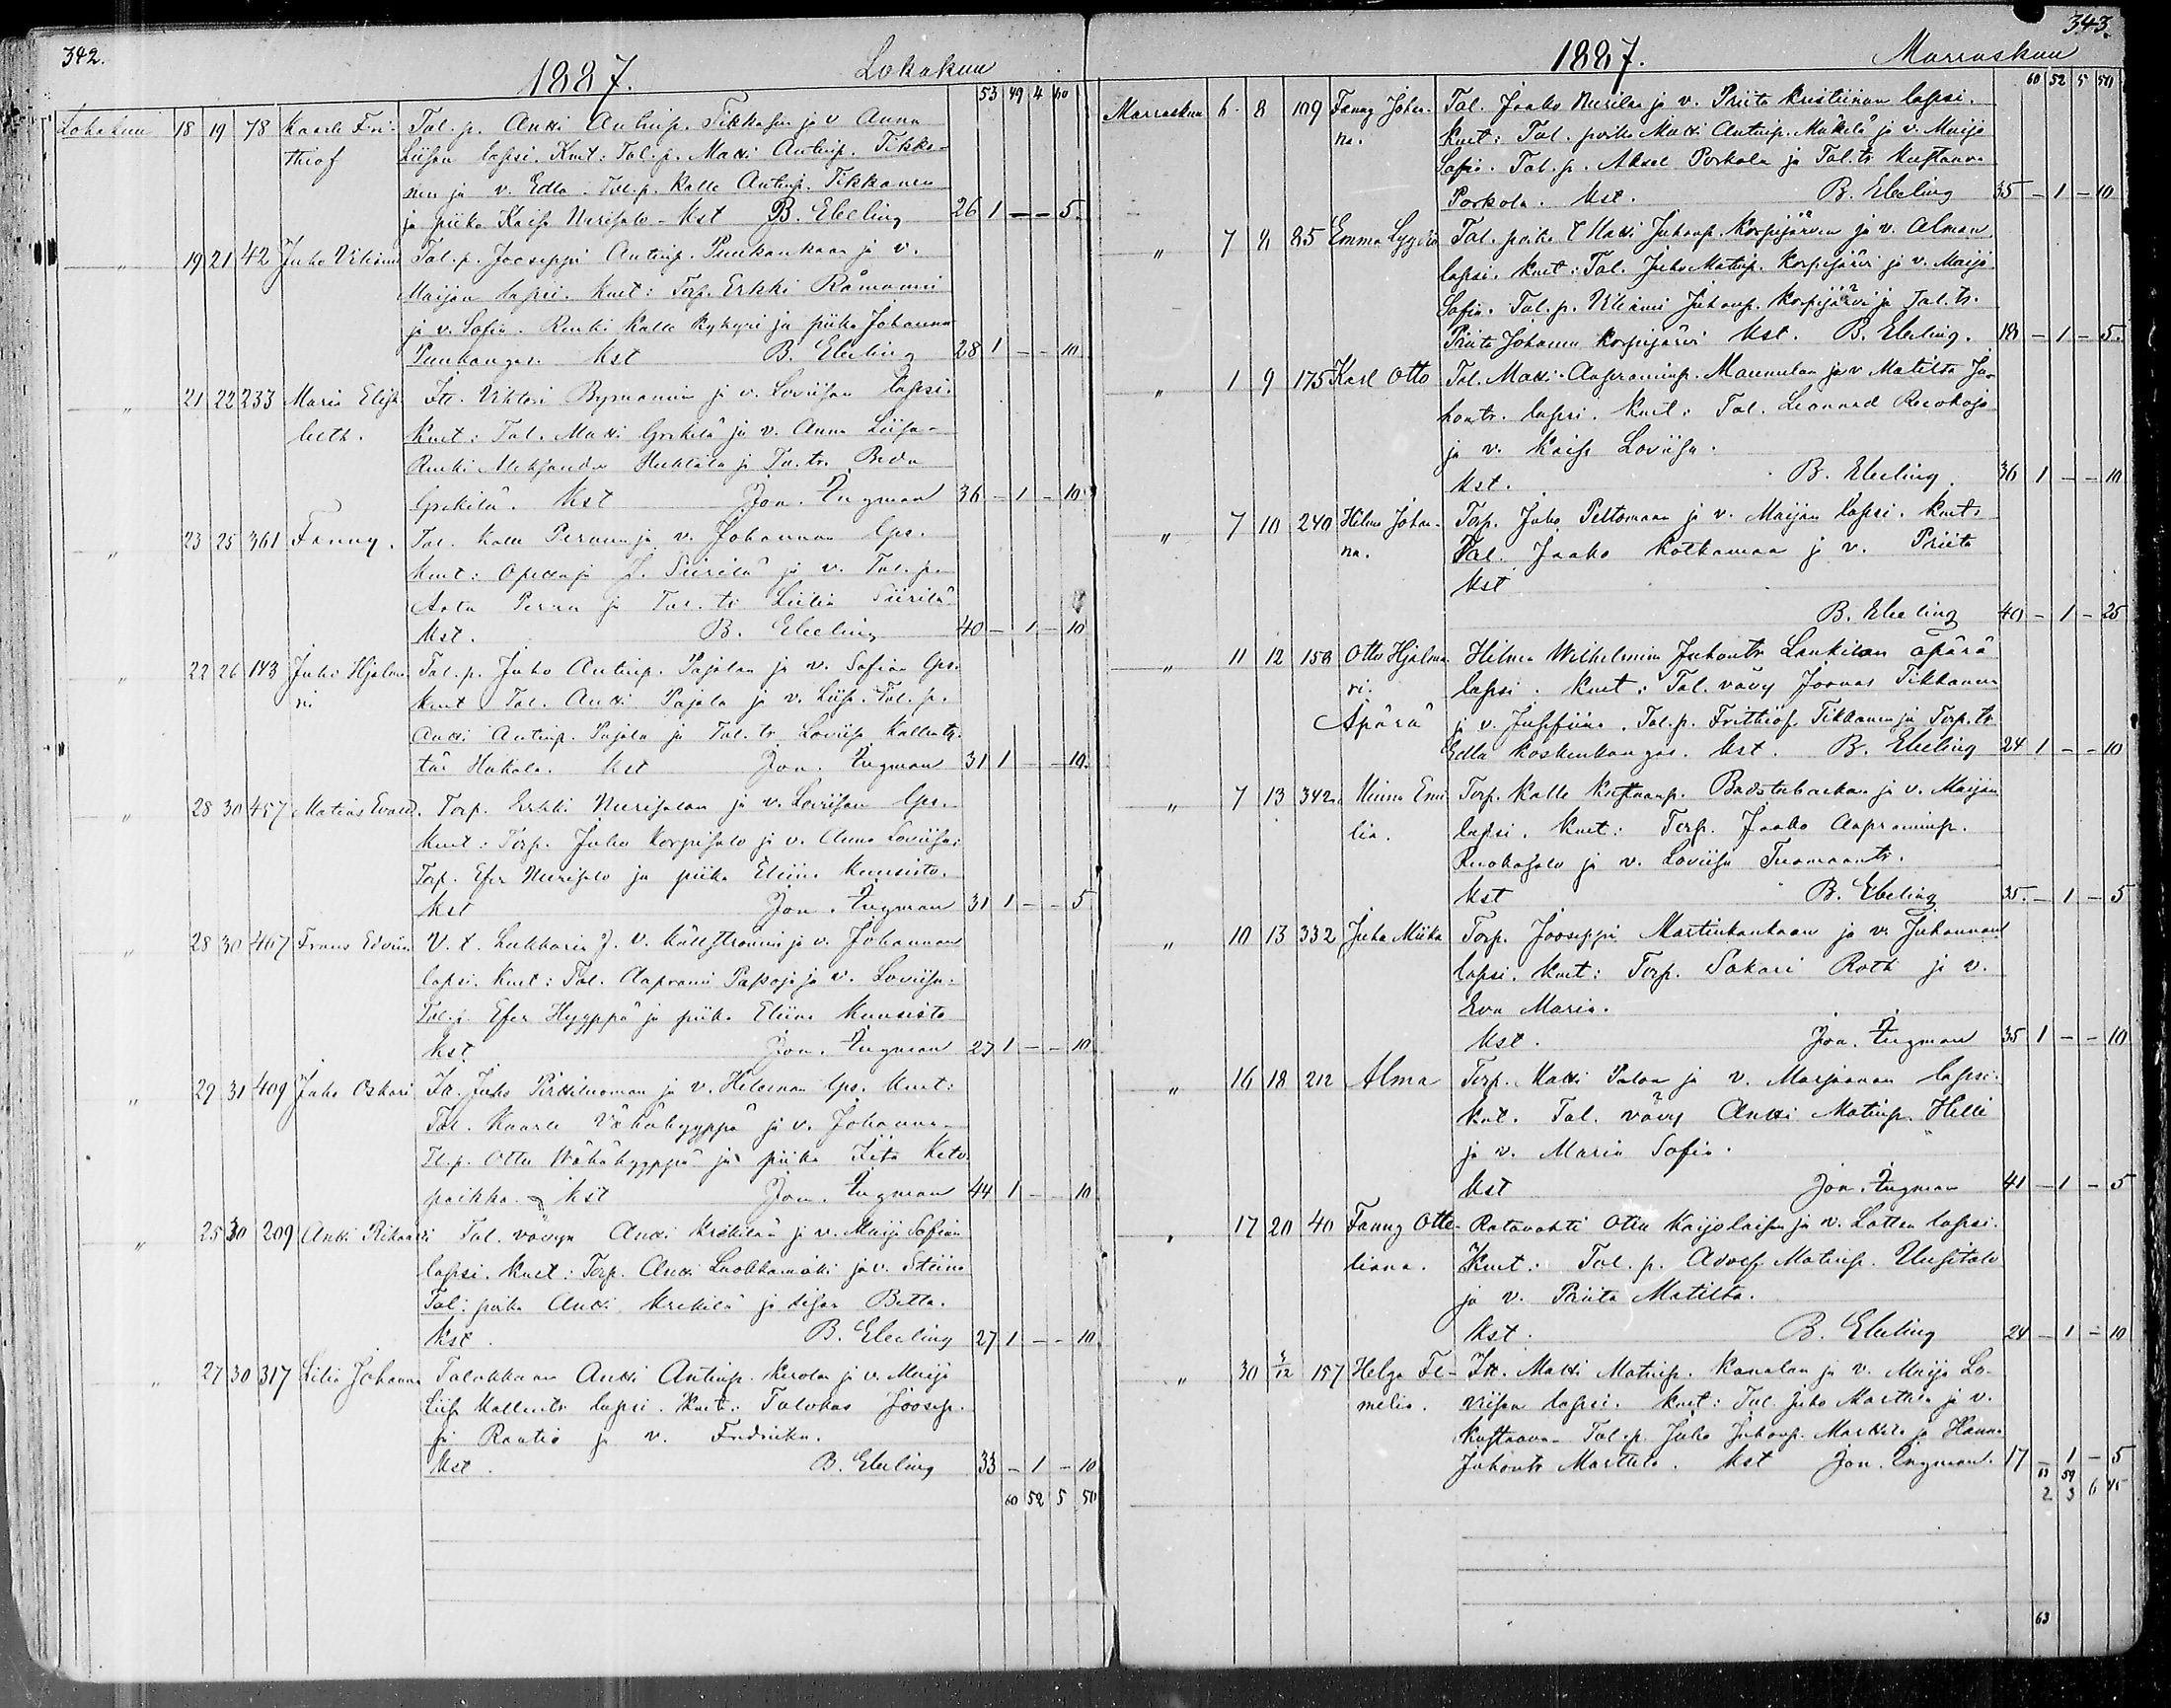 342.
1887.
Lokakuu
53 49 4 40
Lokakuu 18 19 78 Kaarle Fri- Tal. p. Antti Antinp. Tikkasen ja v Anna
thiof Liisan lapsi. Kmt: Tal. p. Matti Antinp. Tikka-
nen ja v. Edla. Tal. p. Kalle Antinp. Tikkanen
ja piika Kaisa Nurisalo - Kst B. Ebeling 26 1 — — 5
" 19 21 42 Juho Viliami Tal. p. Jooseppi Antinp. Punkankaan ja v.
Maijan lapsi. Kmt: Torp. Erkki Råmanni
ja v. Sofia. Renki Kalle Kykyri ja piika Johanna
Punkangas. Kst B. Ebeling 28 1 — — 10
" 21 22 233 Maria Elisa- Itt. Viktori Byrmanin ja v. Loviisan lapsi.
beth. Kmt: Tal. Matti Grekilä ja v. Anna Liisa-
Renki Aleksander Huhtala ja Ta. tr. Breda
Grekilä. Kst Jon. Ingman 36 — 1 — 10
" 23 25 361 Fanny. Tal. Kalle Pernun ja v. Johannan lps.
Kmt: Opettaja J. Siirilä ja v. Tal. p.
Aatu Pernu ja Tal. tr Liilia Siirilä
Kst. B. Ebeling 40 — 1 — 10
" 22 26 143 Juho Hjalma- Tal. p. Juho Antinp. Pajalan ja v. Sofian lps.
ri Kmt Tal. Antti Pajala ja v. Liisa. Tal. p.
Antti Antinp. Pajala ja Tal. tr Loviisa Kallenty-
tär Hakala. Kst Jon. Ingman 31 1 — — 10
" 28 30 457 Matias Evald. Torp. Erkki Nurisalon ja v. Loviisan lps.
Kmt: Torp. Juho Korpisalo ja v. Anna Loviisa;
Torp. Esa Nurisalo ja piika Eliina Kuusisto.
Kst Jon. Ingman 31 1 — — 5
" 28 30 467 Frans Edvin V. t. Lukkarin J. V. Källströmin ja v. Johannan
lapsi. Kmt: Tal. Aaprami Passoja ja v. Loviisa.
Tal. p. Esa Hyyppä ja piika Eliina Kuusisto
Kst Jon. Ingman 27 1 — — 10
" 29 31 409 Juho Oskari It. Juho Pirttiluoman ja v. Helenan lps. Kmt:
Tal. Kaarle Vähähyyppä ja v. Johanna.
Tl. p. Otto Wähähyyppä ja piika Fiita Keto-
paikka. Kst Jon. Ingman 44 1 — — 10
" 25 30 209 Antti Rikardi Tal. vävyn Antti Krekilän ja v. Maija Sofian
lapsi. Kmt: Torp. Antti Luokkamäki ja v. Stiina
Tal: poika Antti Krekilä ja sisar Betta.
Kst. B. Ebeling 27 1 — — 10
" 27 30 317 Lilia Johanna Talokkaan Antti Antinp. Kerolan ja v. Maija
Liisa Kallentr lapsi. Kmt: Talokas Joosep-
pi Rautio ja v. Fredriika.
Kst. B. Ebeling 33 — 1 — 10
60 52 5 50
343.
1887.
Marraskuu
60 52 5 50
Marraskuu 6 8 109 Fanny Johan- Tal. Jaako Nurilan ja v. Priita Kristiinan lapsi.
na. Kmt: Tal. poika Matti Antinp. Mäkelä ja v. Maija
Sofia. Tal. p. Aksel Porkola ja Tal. tr Kustaava
Porkola. Kst. B. Ebeling 35 — 1 — 10
" 7 8 85 Emma Lyydia Tal. poika Matti Juhonp. Korpijärven ja v. Alman
lapsi. Kmt: Tal. Juho Matinp. Korpijärvi ja v. Maija
Sofia. Tal. p. Viliami Juhonp. Korpijärvi ja Tal. tr.
Priita Johanna Korpijärvi Kst. B. Ebeling. 18 — 1 — 5
" 1 9 175 Karl Otto Tal. Matti Aapraminp. Maunulan ja v Matilta Ju-
hontr. lapsi. Kmt: Tal. Leonard Ruokoja
ja v. Kaisa Loviisa.
Kst. B. Ebeling. 36 1 — — 10
" 7 10 240 Hilma Johan- Torp. Juho Peltomaan ja v. Maijan lapsi. Kmt:
na. Tal. Jaako Kotkamaa ja v. Priita
Kst
B. Ebeling 40 — 1 — 25
" 11 12 158 Otto Hjalma- Hilma Wilhelmina Juhontr Lankilan äpärä
ri. lapsi. Kmt: Tal. vävy Joonas Tikkanen
Äpärä ja v. Josefiina. Tal. p. Frithiof Tikkanen ja Torp. tr
Edla Koskenkangas. Kst. B. Ebeling 24 1 — — 10
" 7 13 342 Minna Emi- Torp. Kalle Kustaanp. Badstubackan ja v. Maijan
lia. lapsi. Kmt: Torp. Jaako Aapraminp.
Ruokosalo ja v. Loviisa Tuomaantr.
Kst B. Ebeling 35 — 1 — 5
" 10 13 332 Juho Miika Torp. Jooseppi Martinkankaan ja v. Johannan
lapsi. Kmt: Torp. Sakari Roth ja v.
Eva Maria.
Kst. Jon. Ingman 35 1 — — 10
" 16 18 212 Alma Torp. Matti Palon ja v. Marjaanan lapsi.
Kmt. Tal. vävy Antti Matinp. Hilli
ja v. Maria Sofia.
Kst Jon. Ingman 41 — 1 — 5
" 17 20 40 Fanny Otte- Ratavahti Otto Kaijolaisen ja v. Lottan lapsi.
liana. Kmt: Tal. p. Adolf Matinp. Uusitalo
ja v. Priita Matilta.
Kst. B. Ebeling 24 — 1 — 10
" 30 3/12 157 Helga Fe- Itt. Matti Matinp. Kanalan ja v. Maija Lo-
melia. viisan lapsi. Kmt: Tal. Juho Marttila ja v.
Kustaava. Tal. p. Juho Juhonp. Marttila ja Hanna
Juhontr Marttila. Kst Jon. Ingman. 17 — 1 — 5
63